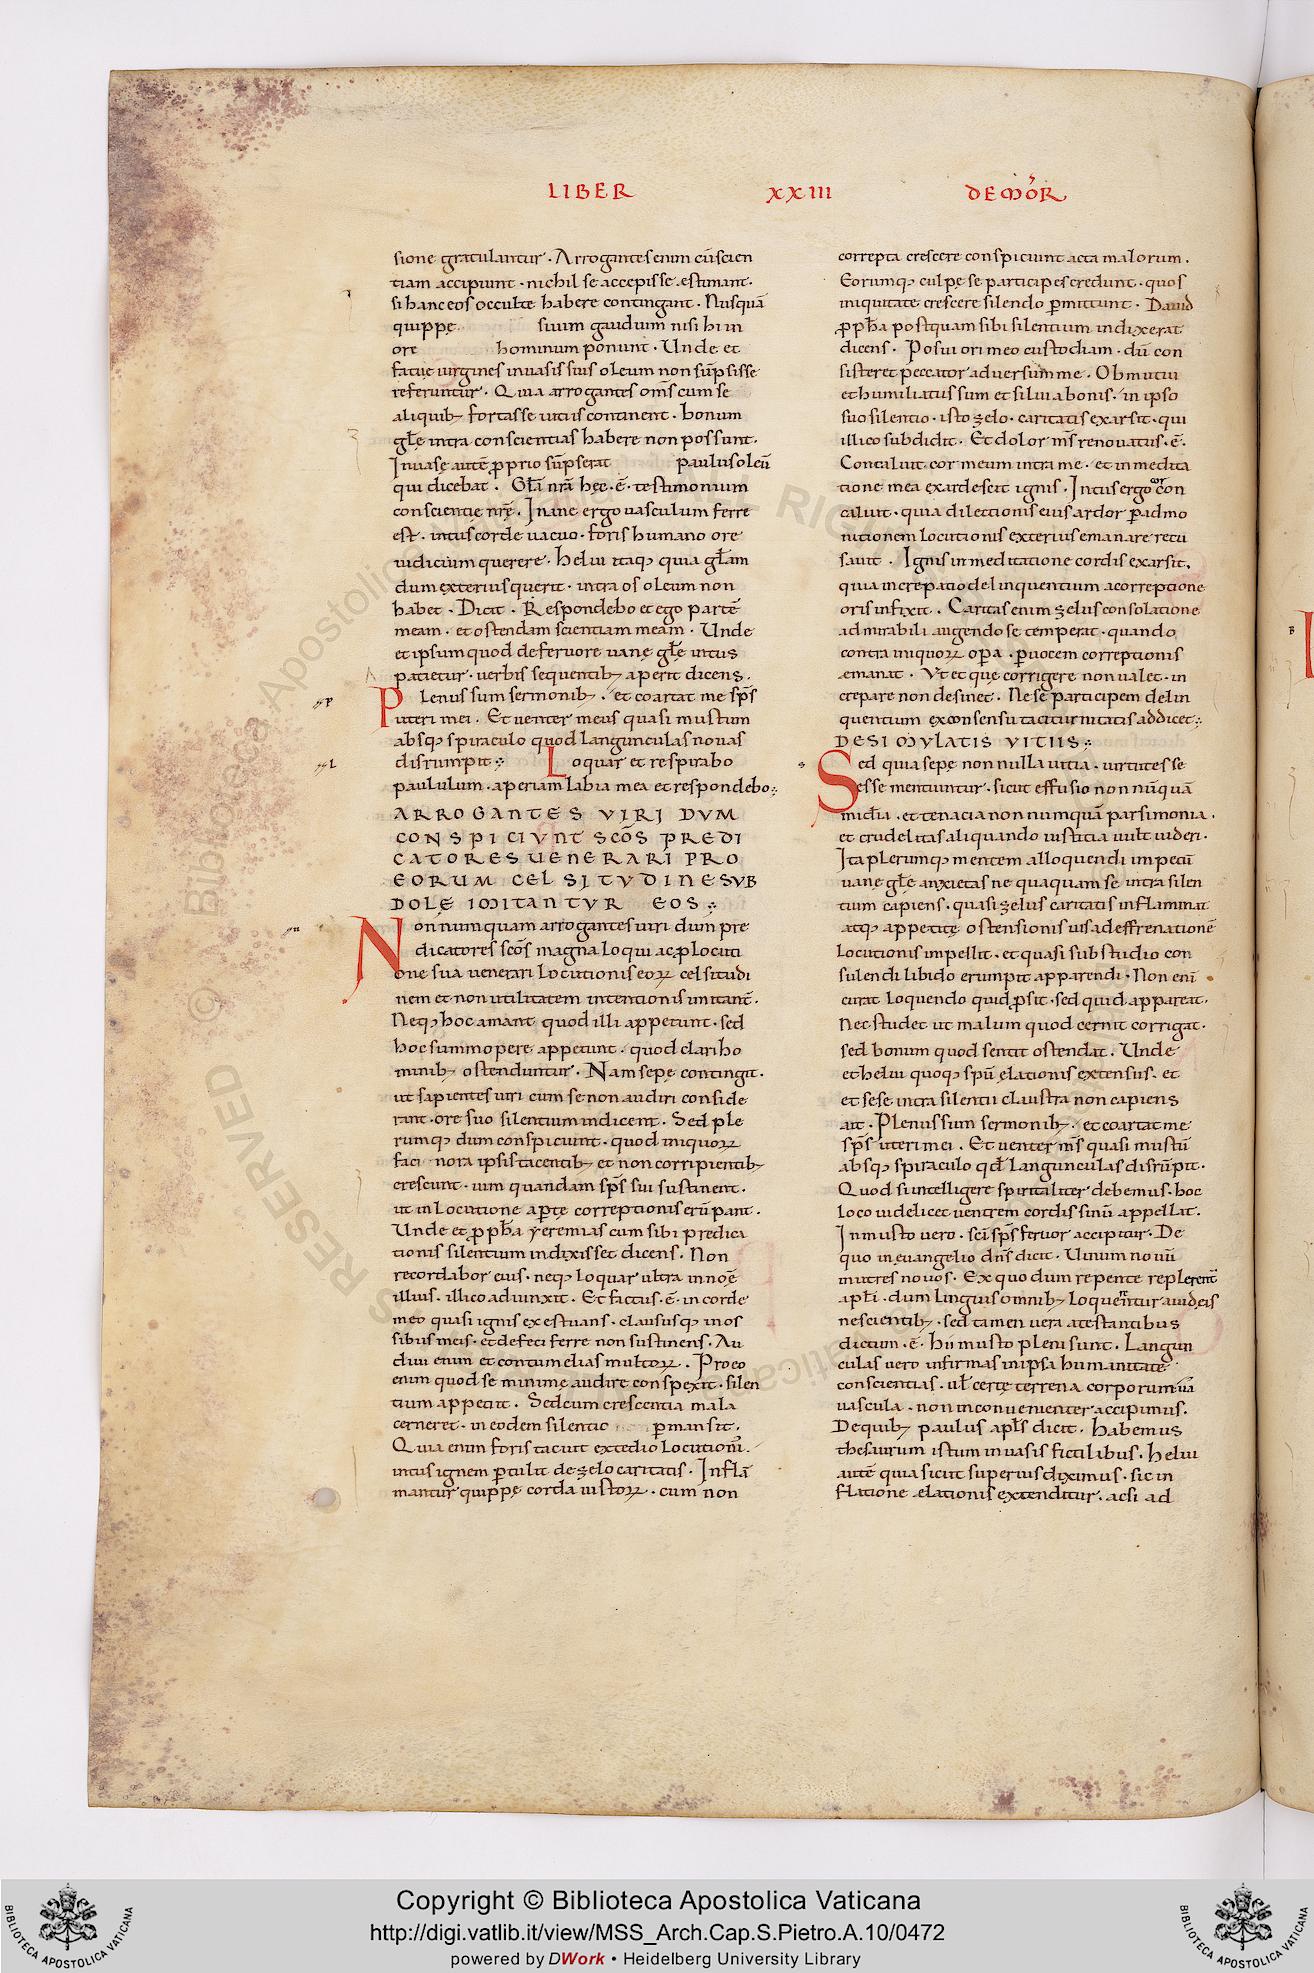 LIBER XXIII DE MOR̄
sione gratulantur. Arrogantes enim cū scien
tiam accipiunt. nichil se accepisse estimant.
si hanc eos occulte habere contingant. Nusquā
quippe suum gaudium nisi hi in
ore hominum ponunt. Unde et
fatue uirgines in uasis suis oleum non sūpsisse
referuntur. Quia arrogantes om̄s cum se
a liquib; fortasse uitiis continent. bonum
gl̄ę intra conscientias habere non possunt.
In uasę autē proprio sūpserat paulus oleū
qui dicebat. Gl̄a nr̄a hęc .ē. testimonium
conscientię nr̄ę. Inane ergo uasculum ferre
est. intus corde uacuo. foris humano ore
iudicium querere. heliu itaq; quia gl̄am
dum exterius querit. intra os oleum non
habet. Dicit. Respondebo et ego partē
meam. et ostendam scientiam meam. Unde
et ipsum quod de feruore uanę gl̄ę intus
patietur. uerbis sequentib; aperit dicens.
Plenus sum sermonib;. et coartat me sp̄s
uteri mei. Et uenter meus quasi mustum
absq; spiraculo quod langunculas nouas
disrumpit. Loquar et respirabo
paululum. aperiam labia mea et respondebo.
ARROGANTES VIRI DVM
CONSPICIVNT SCO̅S PREDI
CATORES UENERARI PRO
EORUM CELSITVDINE SVB
DOLE IMITANTVR EOS
Non numquam arrogantes uiri dum pre
dicatores sco̅s magna loqui ac p̱ locuti
one sua uenerari locutionis eoꝝ celsitudi
nem et non utilitatem intentionis imitant̄.
Neq; hoc amant quod illi appetunt. sed
hoc summopere appetunt. quod clari ho
minib; ostenduntur. Nam sepę contingit.
ut sapientes uiri cum se non audiri conside
rant. ore suo silentium indicent. Sed ple
rumq; dum conspiciunt. quod iniquoꝝ
faci nora ipsis tacentib; et non corripientib;
crescunt. uim quandam sp̄s sui sustinent.
ut in locutione ap̱te correptionis erūpant.
Unde et ꝓph̄a yeremias cum sibi predica
tionis silentium indixisset dicens. Non
recordabor eius. neq; loquar ultra in noīe
illius. illico adiunxit. Et factus .ē. in corde
meo quasi ignis exestuans. clausus q; in os
sibus meis. et defeci ferre non sustinens. Au
diui enim et contumelias multoꝝ. Pro eo
enim quod se minime audire conspexit. silen
tium appetiit. Sed cum crescentia mala
cerneret. in eodem silentio p̱mansit.
Quia enim foris tacuit ex tedio locutionī.
intus ignem p̱tulit de zelo caritatis. Inflā
mantur quippę corda iustoꝝ. cum non
correpta crescere conspiciunt acta malorum.
Eorumq; culpę se participes credunt. quos
iniquitate crescere silendo p̱mittunt. Dauid
ꝓph̄a postquam sibi silentium indixerat
dicens. Posui ori meo custodiam. dū con
sisteret peccator aduersum me. Obmutui
et humiliatus sum et silui a bonis. in ipso
suo silentio. isto zelo. caritatis exarsit. qui
illico subdidit. Et dolor m̄s renouatus .ē.
Concaluit cor meum intra me. et in medita
tione mea exardescit ignis. Intus ergo cor con
caluit. quia dilectionis eius ardor p̱ admo
nitionem locutionis exterius emanare recu
sauit. Ignis in meditatione cordis exarsit.
quia increpatio delinquentium a correptione
oris infixit. Caritas enim zelus consolatione
admirabili augendo se temperat. quando
contra iniquoꝝ op̱a. p̱ uocem correptionis
emanat. Vt et quę corrigere non ualet. in
crepare non desinet. Ne se participem delin
quentium ex consensu taciturnitatis addicet.
DE SIMVLATIS VITIIS
Sed quia sepę non nulla uitia. uirtutes se
esse mentiuntur. sicut effusio non nūquā
mid̄ia. et tenacia non numquā parsimonia.
et crudelitas aliquando iustitia uult uideri.
Ita plerumq; mentem alloquendi impetū
uanę gl̄ę anxietas ne quaquam se intra silen
tium capiens. quasi zelus caritatis inflammat
atq; appetitę ostensionis uis ad effrenationē
locutionis impellit. et quasi sub studio con
sulendi libido erumpit apparendi. Non enī
curat loquendo quid ꝓsit. sed quid appareat.
Nec studet ut malum quod cernit corrigat.
sed bonum quod sentit ostendat. Unde
et heliu quoq; sp̄u elationis extensus. et
et sese intra silentii claustra non capiens
ait. Plenus sum sermonib;. et coartat me
sp̄s uteri mei. Et uenter m̄s quasi mustū
absq; spiraculo qd̄ langunculas disrūpit.
Quod si intelligere spiritaliter debemus. hoc
loco uidelicet uentrem cordis sinū appellat.
In musto uero. sc̄i sp̄s feruor accipitur. De
quo in euangelio dn̄s dicit. Uinum nouū
in utres nouos. Ex quo dum repente replerent̄
apl̄i. dum linguis omnib; loquerentur a iudeis
nescientib;. sed tamen uera atestantibus
dictum .ē. hii musto pleni sunt. Langun
culas uero infirmas in ipsa humanitate
conscientias. ul̄ certę terrena corporum
uascula. non inconuenienter accipimus.
De quib; paulus apl̄s dicit. habemus
thesaurum istum in uasis fictilibus. heliu
autē quia sicut superius diximus. sic in
flatione elationis extenditur. acsi ad
Copyright © Biblioteca Apostolica Vaticana
http://digi.vatlib.it/view/MSS_Arch.Cap.S.Pietro.A.10/0472
powered by DWork • Heidelberg University Library